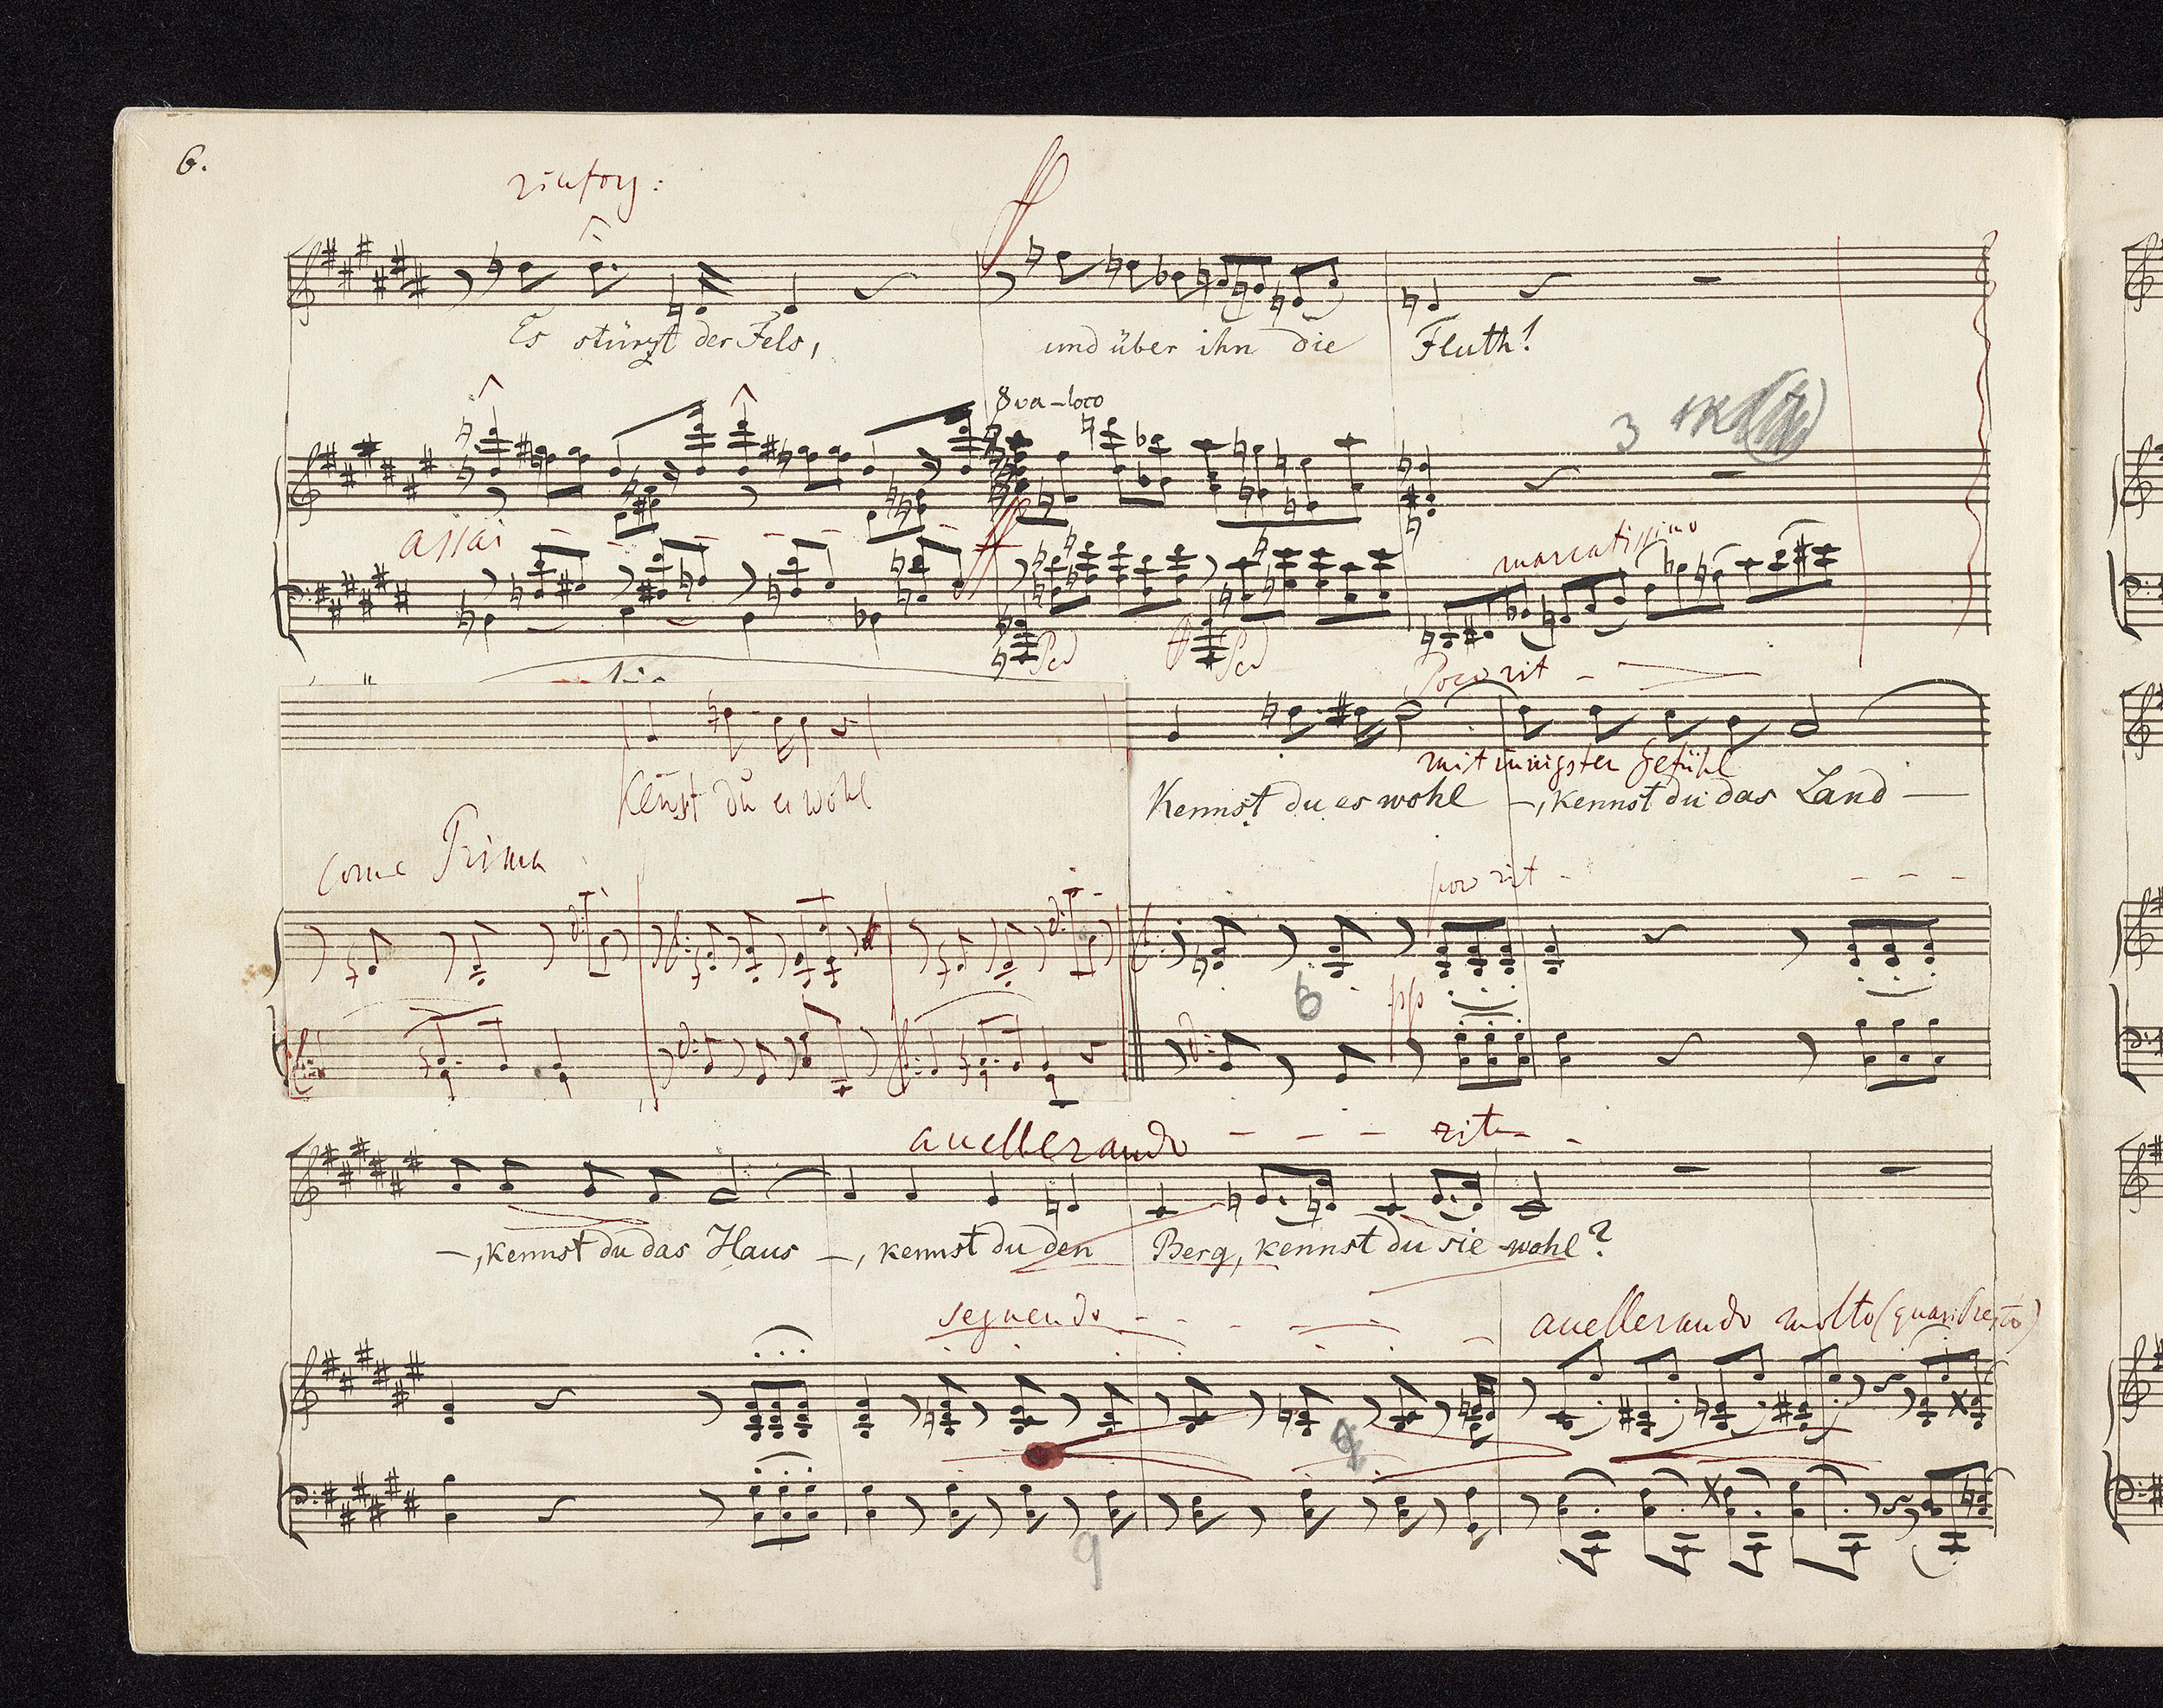 6.
rinforz:
ff
Es stürzt der Fels, und über ihn die Fluth!
8va - loco
3
assai - - - - - - ff
marcatissimo
Ped ff Ped
Poco rit -
mit innigsten Gefühl
Kenst du es wohl Kennst du es wohl -, kennst du das Land -
Come Prima
poco rit - - - -
6 pp
accellerando - - - rit - -
-, kennst du das Haus -, kennst du den Berg, kennst du sie wohl?
seguendo - - - - - -
accellerando molto (quasi Presto)
9